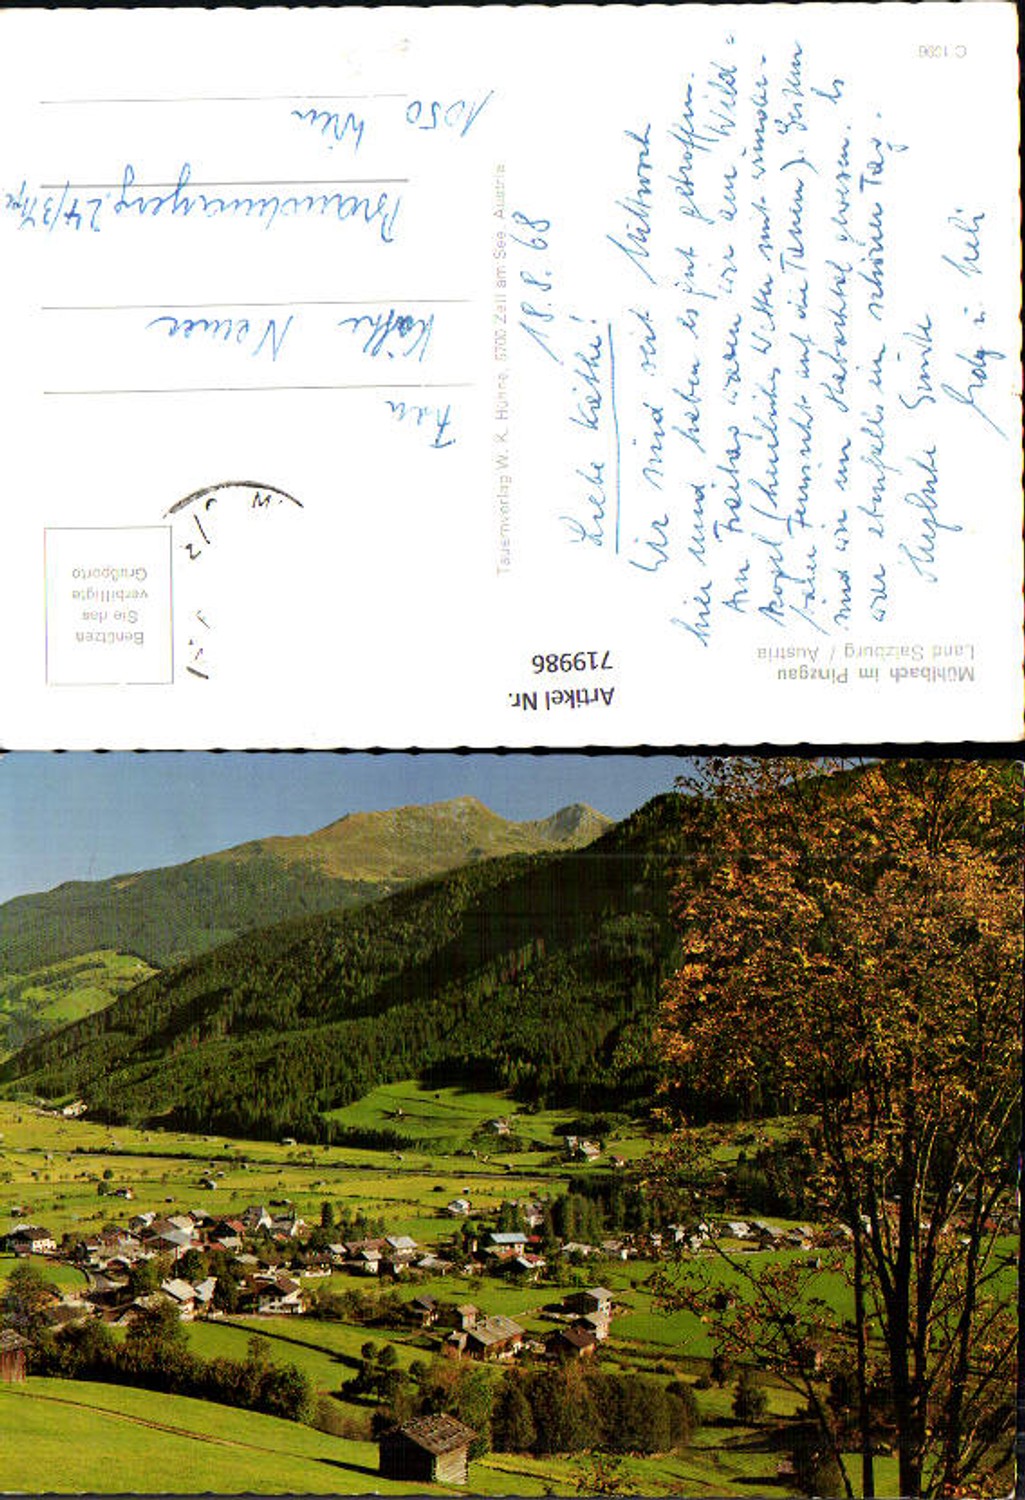 C 1096
18.8.68
Liebe Käthe!
Wir sind seit Mittwoch
hier und haben es gut getroffen.
Am Freitag waren wir am Wild-
kogel (herrliches Wetter mit wunder-
barer Fernsicht auf die Tauern). Gestern
sind wir im Habachtal gewesen. Es
war ebenfalls ein schöner Tag.
Grüße
Mühlbach im Pinzgau
Land Salzburg / Austria
Tauernverlag W. K. Hühne, 5700 Zell am See, Austria
Benützen
Sie das
verbilligte
Grußporto
Frau
Käthe
1050 Wien
Artikel Nr.
719986